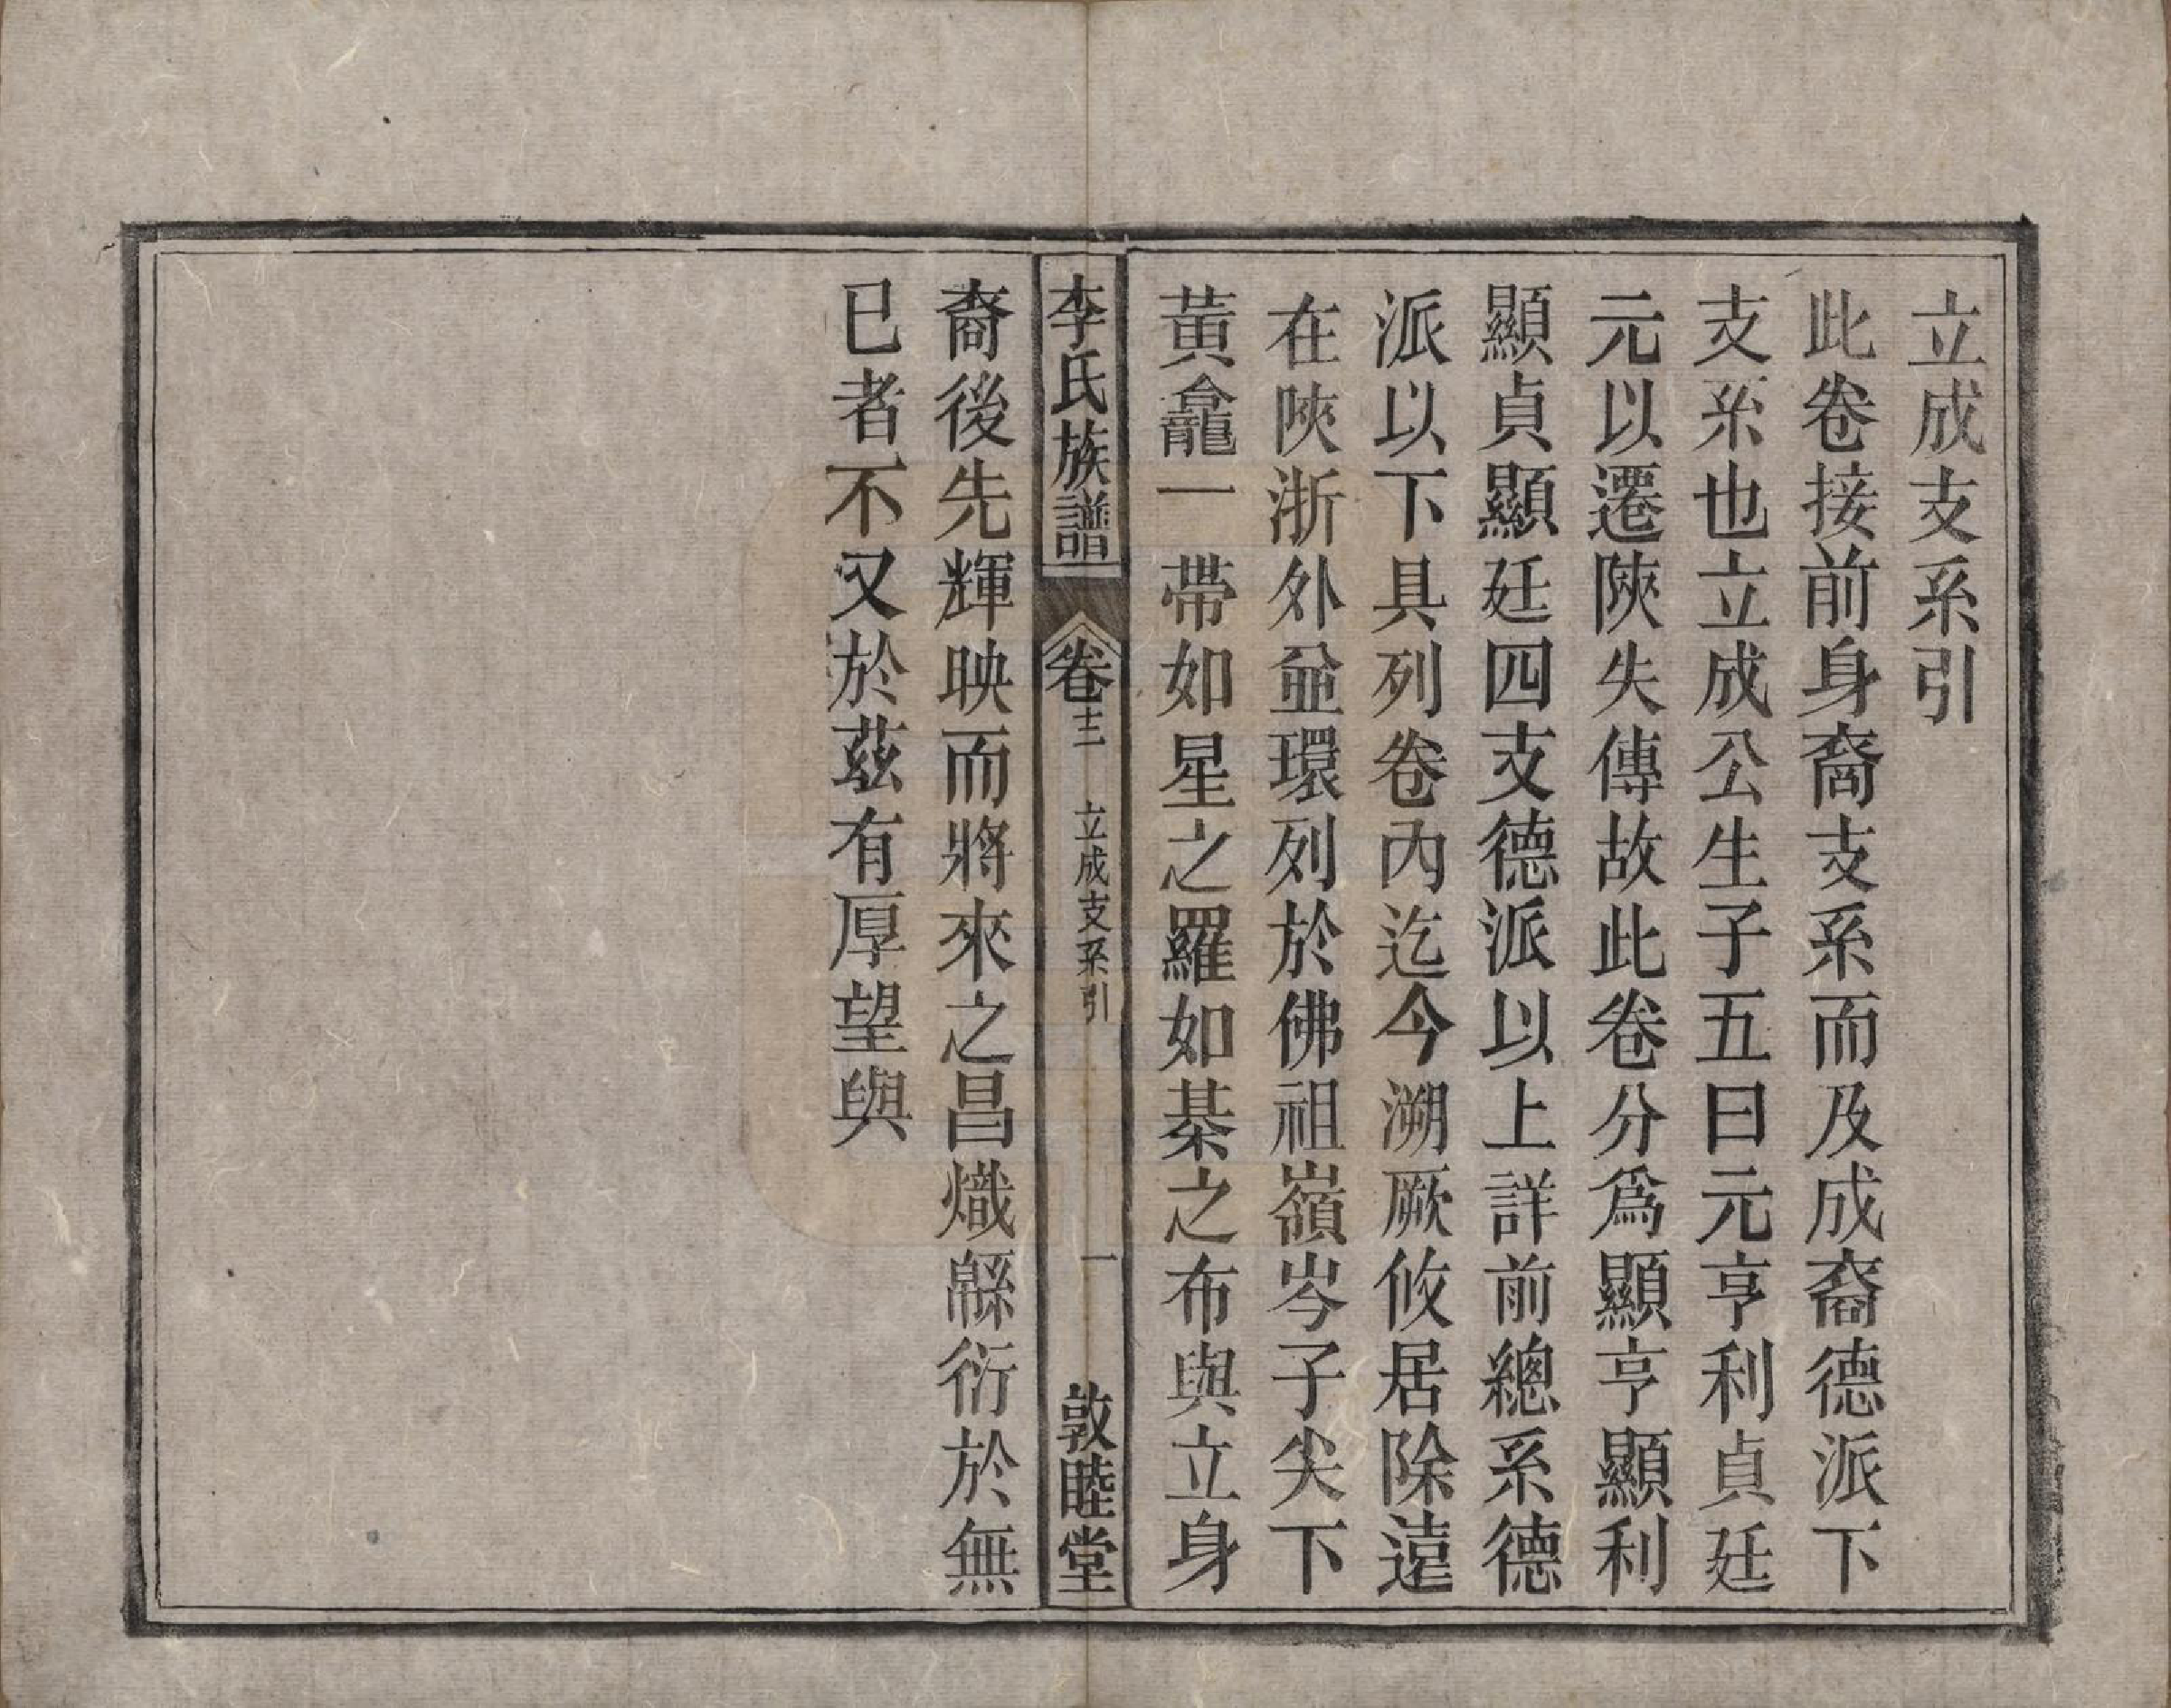 立成支系引
此卷接前身裔支系而及成裔德派下
支系也立成公生子五曰元亨利貞廷
元以遷陝失傳故此卷分爲顯亨顯利
顯貞顯廷四支德派以上詳前總系德
派以下具列卷內迄今溯厥攸居除遠
在陝浙外並環列於佛祖嶺岑子尖下
黃龕一帶如星之羅如棊之布與立身
李氏族譜 卷十二 立成支系引 一 敦睦堂
裔後先輝映而將來之昌熾緜衍於無
已者不又於茲有厚望與